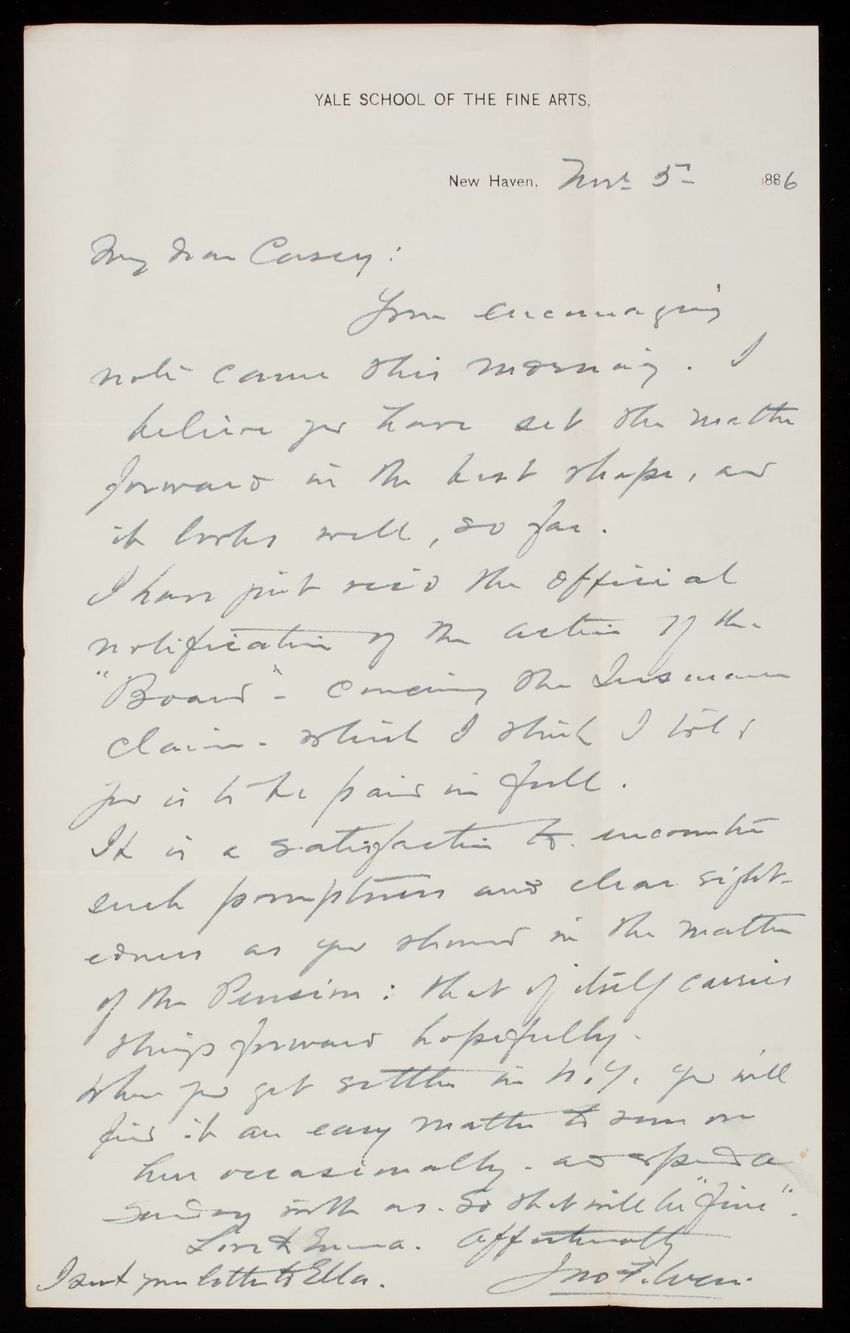 YALE SCHOOL OF THE FINE ARTS,
New Haven, Nov. 5th 1886
My dear Casey:
Your encouraging
note came this morning. I
believe you have set the matter
forward in the best shape, and
it looks well, so far.
I have just rec'd the official
notification of the action of the
"Board" - concerning the Insurance
claim - which I think I told
you is to be paid in full.
It is a satisfaction to encounter
such promptness and clear sight-
edness as you showed in the matter
of the Pension: that of itself carries
things forward hopefully.
When you get settled in N.Y. you will
find it an easy matter to run on
here occasionally - and spend a
Sunday with us. So that will be "fine".
Love to Emma. Affectionately
I sent your letter to Ella. Jno. F. Weir.